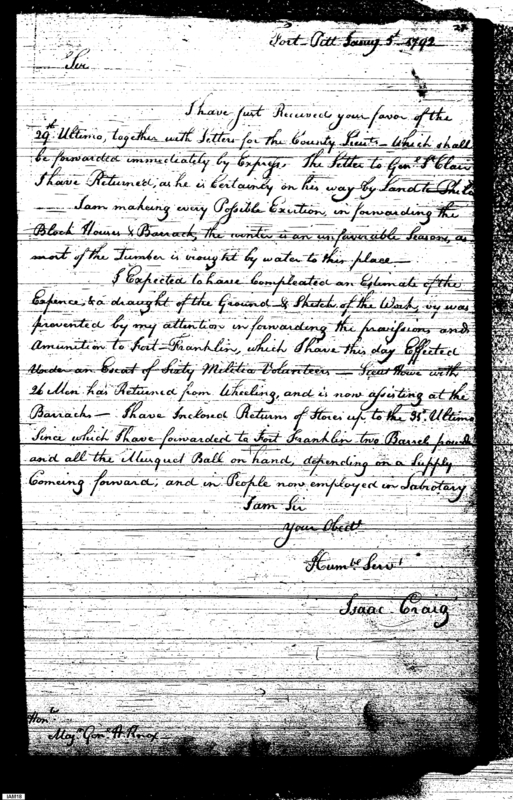 Fort Pitt Jany 5th 1792
Sir
I have just Received your favor of the
29th Ultimo, together with Letters for the County Lieuts - Which shall
be forwarded immediately by Express. The Letter to Genl St Clair
I have Returned, as he is Certainly on his way by Land to Phila
— I am makeing every Possible Exertion, in forwarding the
Block Houses & Barrack, the winter is an unfavorable Season, as
most of the Timber is brought by water to this place —
I Expected to have Compleated an Estimate of the
Expence, & a draught of the Ground & Sketch of the Work, by was
prevented by my attention in forwarding the provissions and
Amunition to Fort-Franklin, which I have this day Effected
Under an Escort of Sixty Militia Volunteers — Lieut Howe with
26 Men has Returned from Wheeling, and is now assisting at the
Barracks — I have Inclosed Returns of Stores up to the 31st Ultimo
Since which I have forwarded to Fort Franklin two Barrel powder
and all the Musquet Ball on hand, depending on a Supply
Comeing forward, and in People now employed in Labrotary
I am Sir
Your Obedt
Humble Servt
Isaac Craig
Honble
Majr Genl H. Knox
IAM18